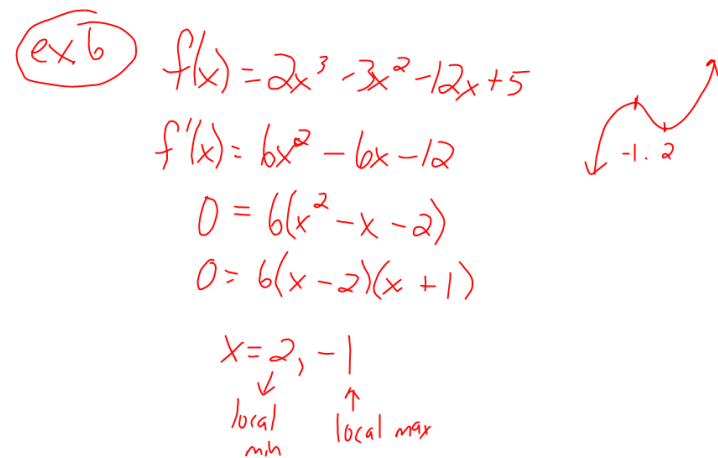 ex 6
f(x) = 2x³ - 3x² - 12x + 5
f'(x) = 6x² - 6x - 12
0 = 6(x² - x - 2)
0 = 6(x - 2)(x + 1)
x = 2, -1
local min
local max
-1. 2